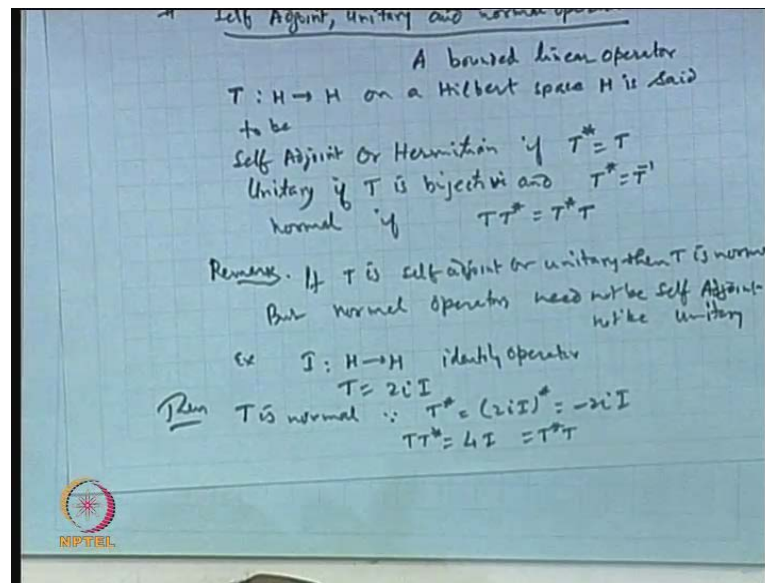 Self Adjoint, Unitary and normal oper
A bounded linear operator
T : H → H on a Hilbert space H is said
to be
Self Adjoint Or Hermitian if T* = T
Unitary if T is bijective and T* = T⁻¹
normal if TT* = T*T
Remark. If T is self adjoint or unitary then T is norma
But normal operators need not be Self Adjoint
not be Unitary
Ex I : H → H identity operator
T = 2iI
Then T is normal ∵ T* = (2iI)* = -2iI
TT* = 4I = T*T
NPTEL